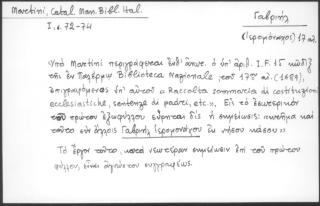 Martini, Catal. Man. Bibl. Ital.
I. σ. 72-74
Γαβριήλ
(Ἱερομόναχος) 17 αἰ.
Ὑπὸ Martini περιγράφεται ὑπ' ἀριθ. I.F.15 κῶδιξ
τῆς ἐν Παλέρμῳ Biblioteca Nazionale τοῦ 17ου αἰ. (1689),
ἐπιγραφόμενος ὑπ' αὐτοῦ «Raccolta sommaria di costituzioni
ecclesiastiche, sentenze di padri, etc.». Εἰς τὸ ἐσωτερικὸν
τοῦ πρώτου ἐξωφύλλου εὕρηται δὶς ἡ σημείωσις: «κτῆμα καὶ
τοῦτο σὺν ἄλλοις Γαβριὴλ Ἱερομονάχου ἐκ νήσου νάξου»
Τὸ ἔργον τοῦτο, κατὰ νεωτέραν σημείωσιν ἐπὶ τοῦ πρώτου
φύλλου, εἶναι ἀγνώστου συγγραφέως.